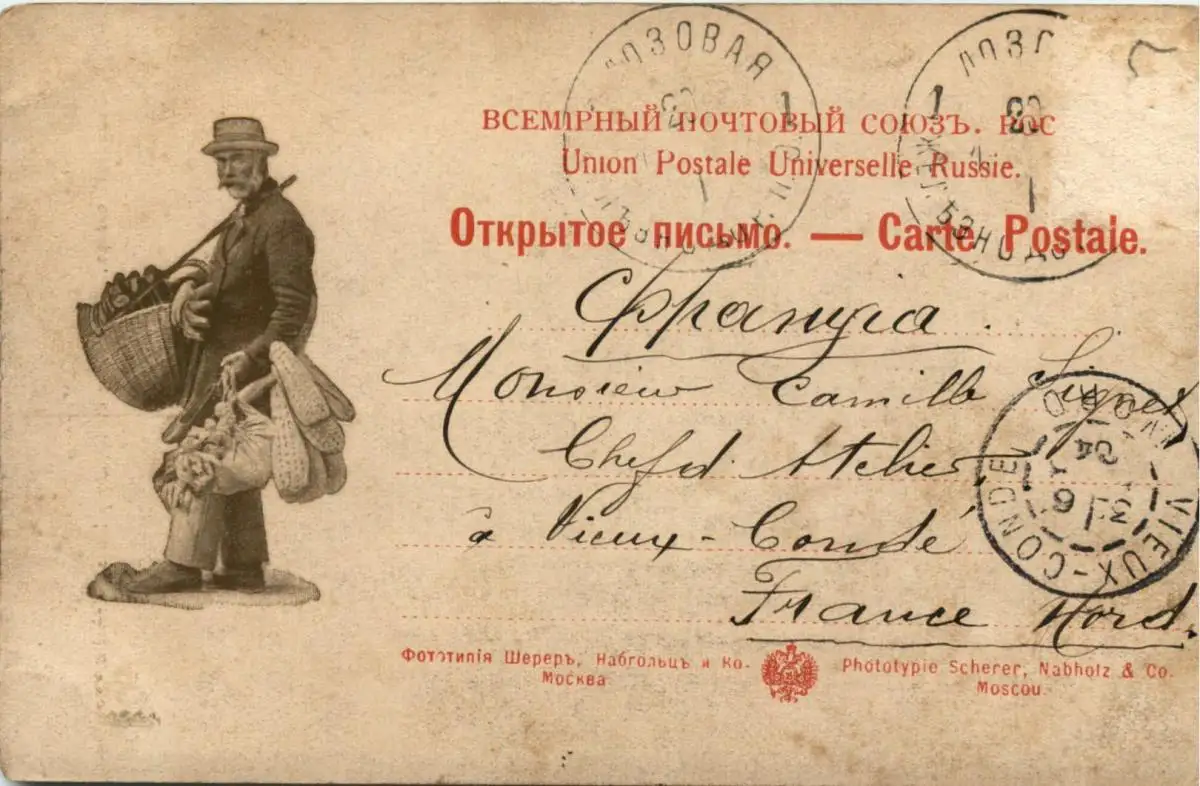 ЛОЗОВАЯ
1
ЛОЗО
1
ВСЕМІРНЫЙ ПОЧТОВЫЙ СОЮЗЪ. РОС
Union Postale Universelle Russie.
Открытое письмо. — Carte Postale.
Франція.
Monsieur Camille
Chef d. Atelier
à Vieux-Condé
France Nord.
VIEUX-CONDÉ
NORD
13
6
04
Фототипія Шереръ, Набгольцъ и Ко.
Москва
Phototypie Scherer, Nabholz & Co.
Moscou.